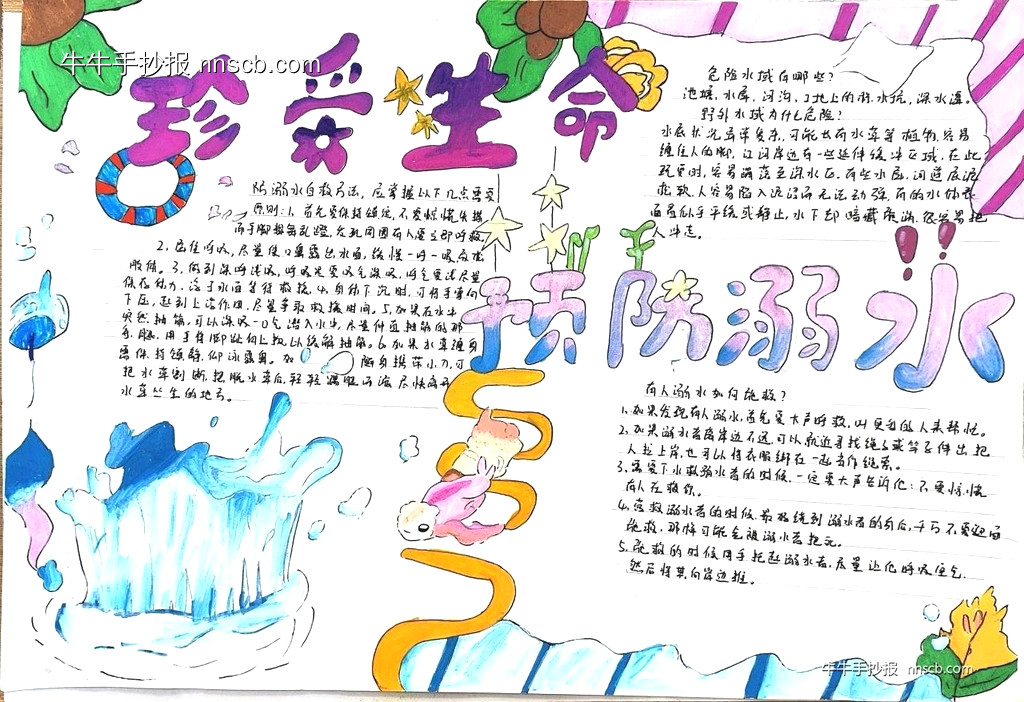 牛牛手抄报 nnscb.com
珍爱生命
危险水域有哪些?
池塘、水库、河沟、工地上的积水坑、深水潭。
野外水域为什么危险?
水底状况异常复杂,可能长有水草等植物,容易
缠住人的脚,江河岸边有一些延伸缓冲区域,在此
玩耍时,容易滑落至深水区,有些水库、河道底泥
松软,人容易陷入泥沼而无法动弹,有的水体表
面看似平缓或静止,水下却暗藏漩涡,很容易把
人冲走。
防溺水自救方法,应掌握以下几点要
原则:1.首先要保持镇定,不要惊慌失措
而手脚抽筋乱蹬,发现周围有人要立即呼救。
2.屏住呼吸,尽量使口鼻露出水面,
服体。3.做到深呼浅吸,呼吸
保存体力,浮于水面等待救援,4.身体下沉时,可将手掌向
下压,起到上浮作用,尽量争取救援时间。5.如果在水中
突然抽筋,可以深吸一口气潜入水中,尽量伸直抽筋的那
条腿,用手将脚趾向上扳,以缓解抽筋。6.如果水草缠身
需保持镇静,仰泳露鼻。如 随身携带小刀,可
把水草割断,挣脱水草后,轻轻踢腿而游,尽快离开
水草丛生的地方。
预防溺水
有人溺水如何施救?
1.如果发现有人溺水,首先要大声呼救,叫更多的人来帮忙。
2.如果溺水者离岸边不远可以就近寻找绳子或竿子伸出把
人拉上岸,也可以将衣服绑在一起当作绳索。
3.需要下水救溺水者的时候,一定要大声告诉他:不要惊慌
有人在救你。
4.营救溺水者的时候,最好绕到溺水者的身后,千万不要迎面
施救,那样可能会被溺水者抱死。
5.施救的时候用手托起溺水者,尽量让他呼吸空气,
然后将其向岸边推。
牛牛手抄报 nnscb.com